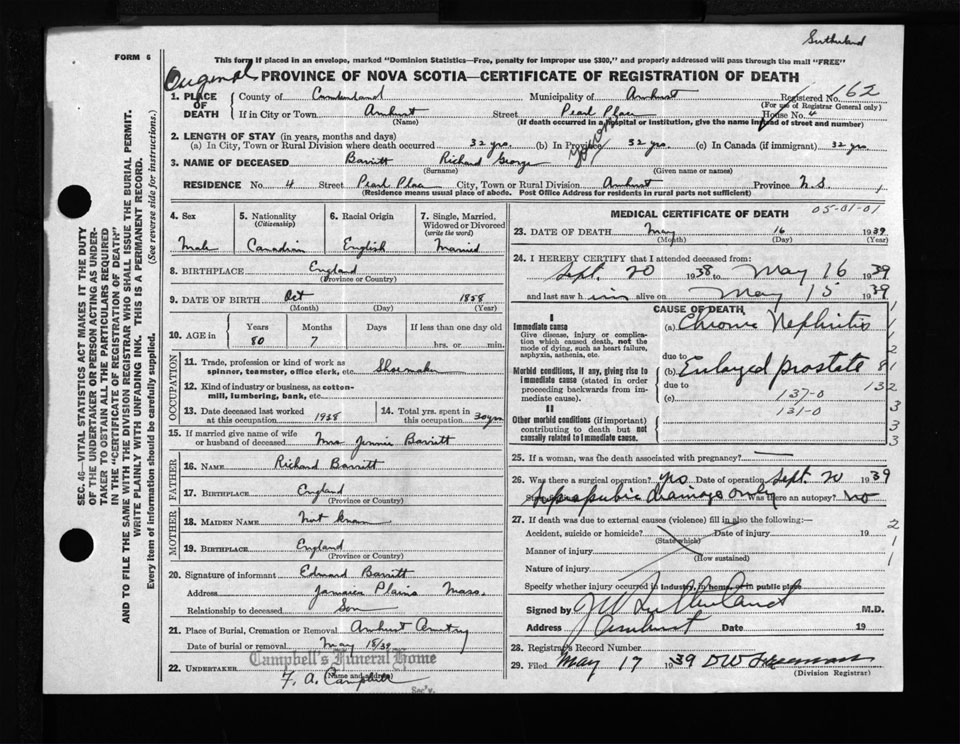 Sutherland
FORM 6
This form if placed in an envelope, marked "Dominion Statistics—Free, penalty for improper use $300," and properly addressed will pass through the mail "FREE"
Original
PROVINCE OF NOVA SCOTIA—CERTIFICATE OF REGISTRATION OF DEATH
1. PLACE OF DEATH
County of Cumberland Municipality of Amherst Registered No. 162
(For use of Registrar General only)
If in City or Town Amherst Street Pearl Place House No. 4
(Name) (If death occurred in a hospital or institution, give the name instead of street and number)
2. LENGTH OF STAY (in years, months and days)
(a) In City, Town or Rural Division where death occurred 32 yrs. (b) In Province 32 yrs. (c) In Canada (if immigrant) 32 yrs.
3. NAME OF DECEASED Barritt Richard George
(Surname) (Given name or names)
RESIDENCE No. 4 Street Pearl Place City, Town or Rural Division Amherst Province N.S.
(Residence means usual place of abode. Post Office Address for residents in rural parts not sufficient)
4. Sex 5. Nationality (Citizenship) 6. Racial Origin 7. Single, Married, Widowed or Divorced (write the word)
Male Canadian English Married
8. BIRTHPLACE England
(Province or Country)
9. DATE OF BIRTH Oct 1858
(Month) (Day) (Year)
10. AGE in Years Months Days If less than one day old
80 7 hrs. or min.
OCCUPATION
11. Trade, profession or kind of work as spinner, teamster, office clerk, etc. Shoemaker
12. Kind of industry or business, as cotton-mill, lumbering, bank, etc.
13. Date deceased last worked at this occupation 1938
14. Total yrs. spent in this occupation 30 yrs
15. If married give name of wife or husband of deceased Mrs Jennie Barritt
FATHER
16. NAME Richard Barritt
17. BIRTHPLACE England
(Province or Country)
MOTHER
18. MAIDEN NAME Not known
19. BIRTHPLACE England
(Province or Country)
20. Signature of informant Edward Barritt
Address Jamaica Plains Mass.
Relationship to deceased Son
21. Place of Burial, Cremation or Removal Amherst Cemtry
Date of burial or removal May 18/39
Campbell's Funeral Home
22. UNDERTAKER F. A. Campbell
(Name and address)
Sec'y.
MEDICAL CERTIFICATE OF DEATH
05-01-01
23. DATE OF DEATH May 16 1939
(Month) (Day) (Year)
24. I HEREBY CERTIFY that I attended deceased from:
Sept. 20 1938 to May 16 1939
and last saw him alive on May 15 1939
CAUSE OF DEATH
I
Immediate cause
Give disease, injury or complication which caused death, not the mode of dying, such as heart failure, asphyxia, asthenia, etc.
(a) Chronic Nephritis
due to
Morbid conditions, if any, giving rise to immediate cause (stated in order proceeding backwards from immediate cause).
(b) Enlarged prostate
due to
132
(c) 137-0
131-0
II
Other morbid conditions (if important) contributing to death but not causally related to immediate cause.
25. If a woman, was the death associated with pregnancy?
26. Was there a surgical operation? yes Date of operation Sept. 20 1939
Suprapubic drainage only Was there an autopsy? No
27. If death was due to external causes (violence) fill in also the following:—
Accident, suicide or homicide? Date of injury 19
(State which)
Manner of injury
(How sustained)
Nature of injury
Specify whether injury occurred in industry, in home, or in public place
Signed by J W Sutherland M.D.
Address Amherst Date 19
28. Registrar's Record Number
29. Filed May 17 1939
(Division Registrar)
SEC. 46—VITAL STATISTICS ACT MAKES IT THE DUTY
OF THE UNDERTAKER OR PERSON ACTING AS UNDER-
TAKER TO OBTAIN ALL THE PARTICULARS REQUIRED
IN THE "CERTIFICATE OF REGISTRATION OF DEATH"
AND TO FILE THE SAME WITH THE DIVISION REGISTRAR WHO SHALL ISSUE THE BURIAL PERMIT.
WRITE PLAINLY WITH UNFADING INK. THIS IS A PERMANENT RECORD.
Every item of information should be carefully supplied. (See reverse side for instructions.)